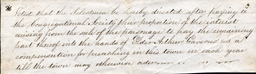 Voted that the Selectmen be hereby directed after paying to
the Congregational Society their proportion of the interest
arising from the sale of the parsonage to pay the remaining
part thereof into the hands of Elder Arthur Caverno as a
compensation for preaching in this town in each year
till the town may otherwise